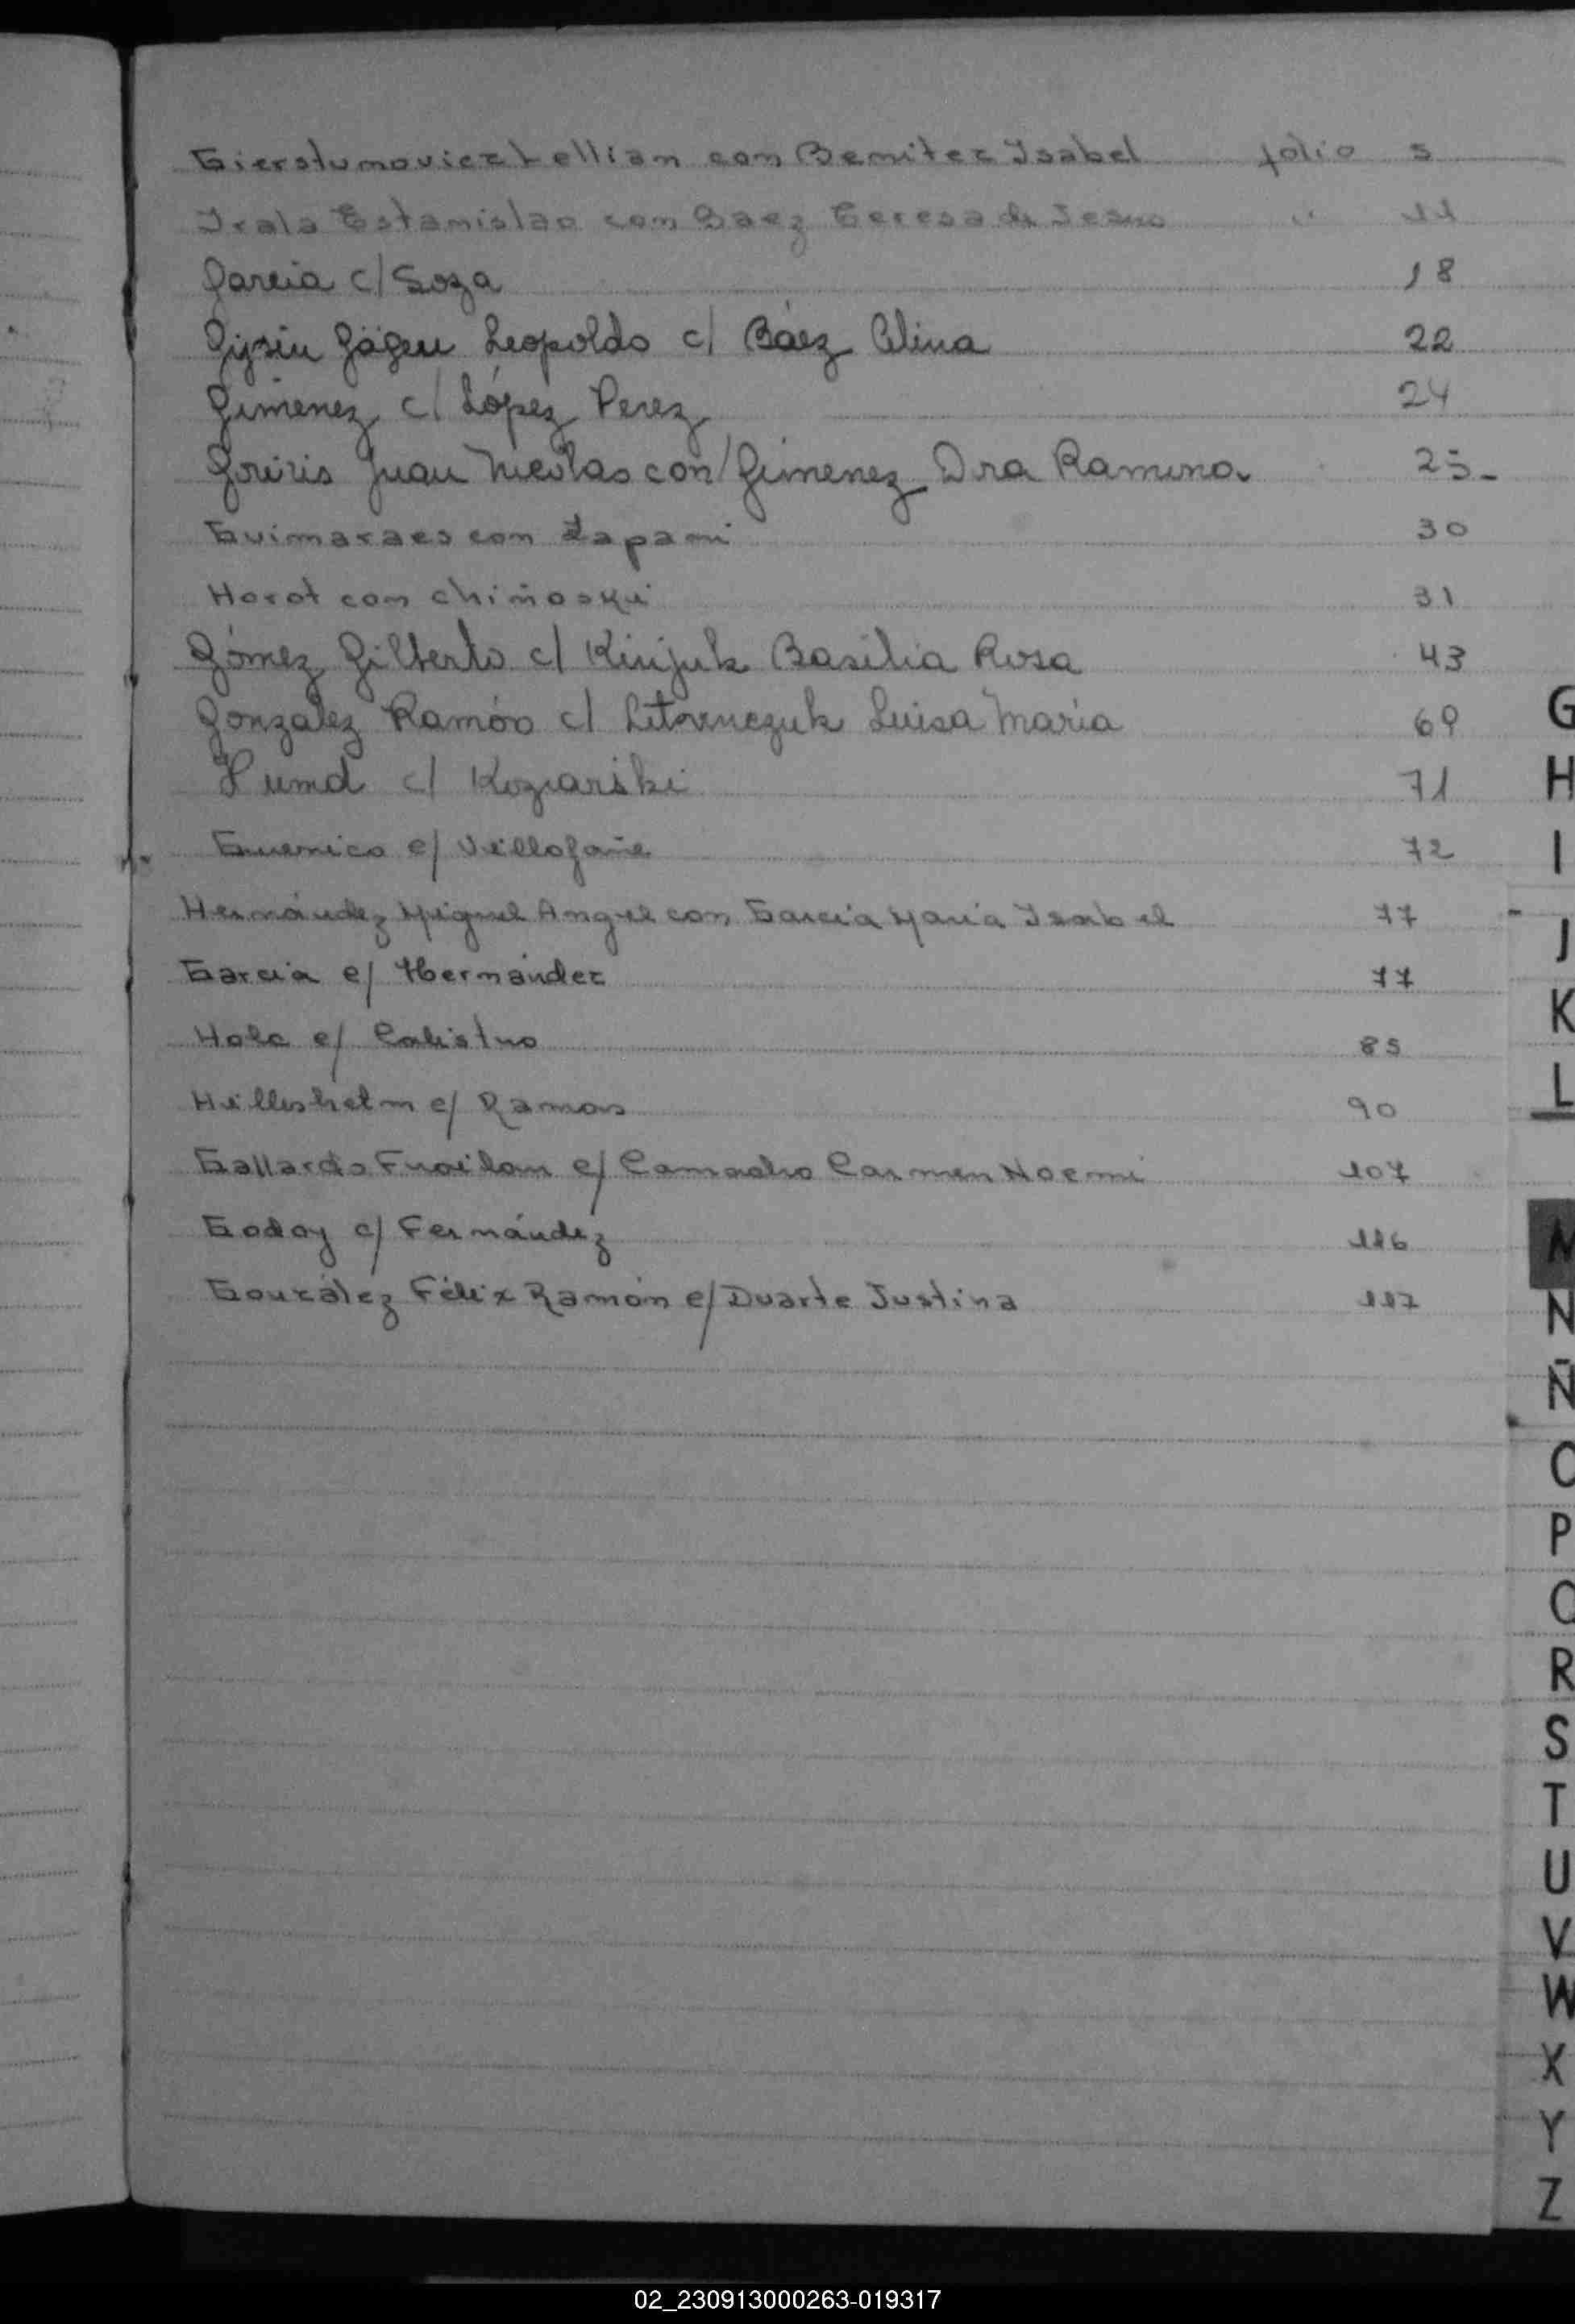 Gierstumovicz Lellian con Benitez Ysabel folio 5
Irala Estanislao con Baez Teresa de Jesus " 11
Garcia c/ Soza 18
Leopoldo c/ Báez Celina 22
Gimenez c/ López Perez 24
Juan Nicolas con/ Gimenez Dra Ramona 25-
Guimaraes con Zapani 30
Horot con Chiñoski 31
Gómez Gilberto c/ Kinjuk Basilia Rosa 43
Gonzalez Ramón c/ Litovnczuk Luisa Maria 69
Humd c/ Koziarski 71
Guenico c/ Villafañe 72
Hernández Miguel Angel con Garcia Maria Ysabel 77
Garcia c/ Hernández 77
Holc c/ 85
c/ Ramos 90
Gallardo Froilan c/ Camacho Carmen Noemi 107
Godoy c/ Fernández 116
González Félix Ramón c/ Duarte Justina 117
G
H
I
J
K
L
M
N
Ñ
O
P
Q
R
S
T
U
V
W
X
Y
Z
02_230913000263-019317